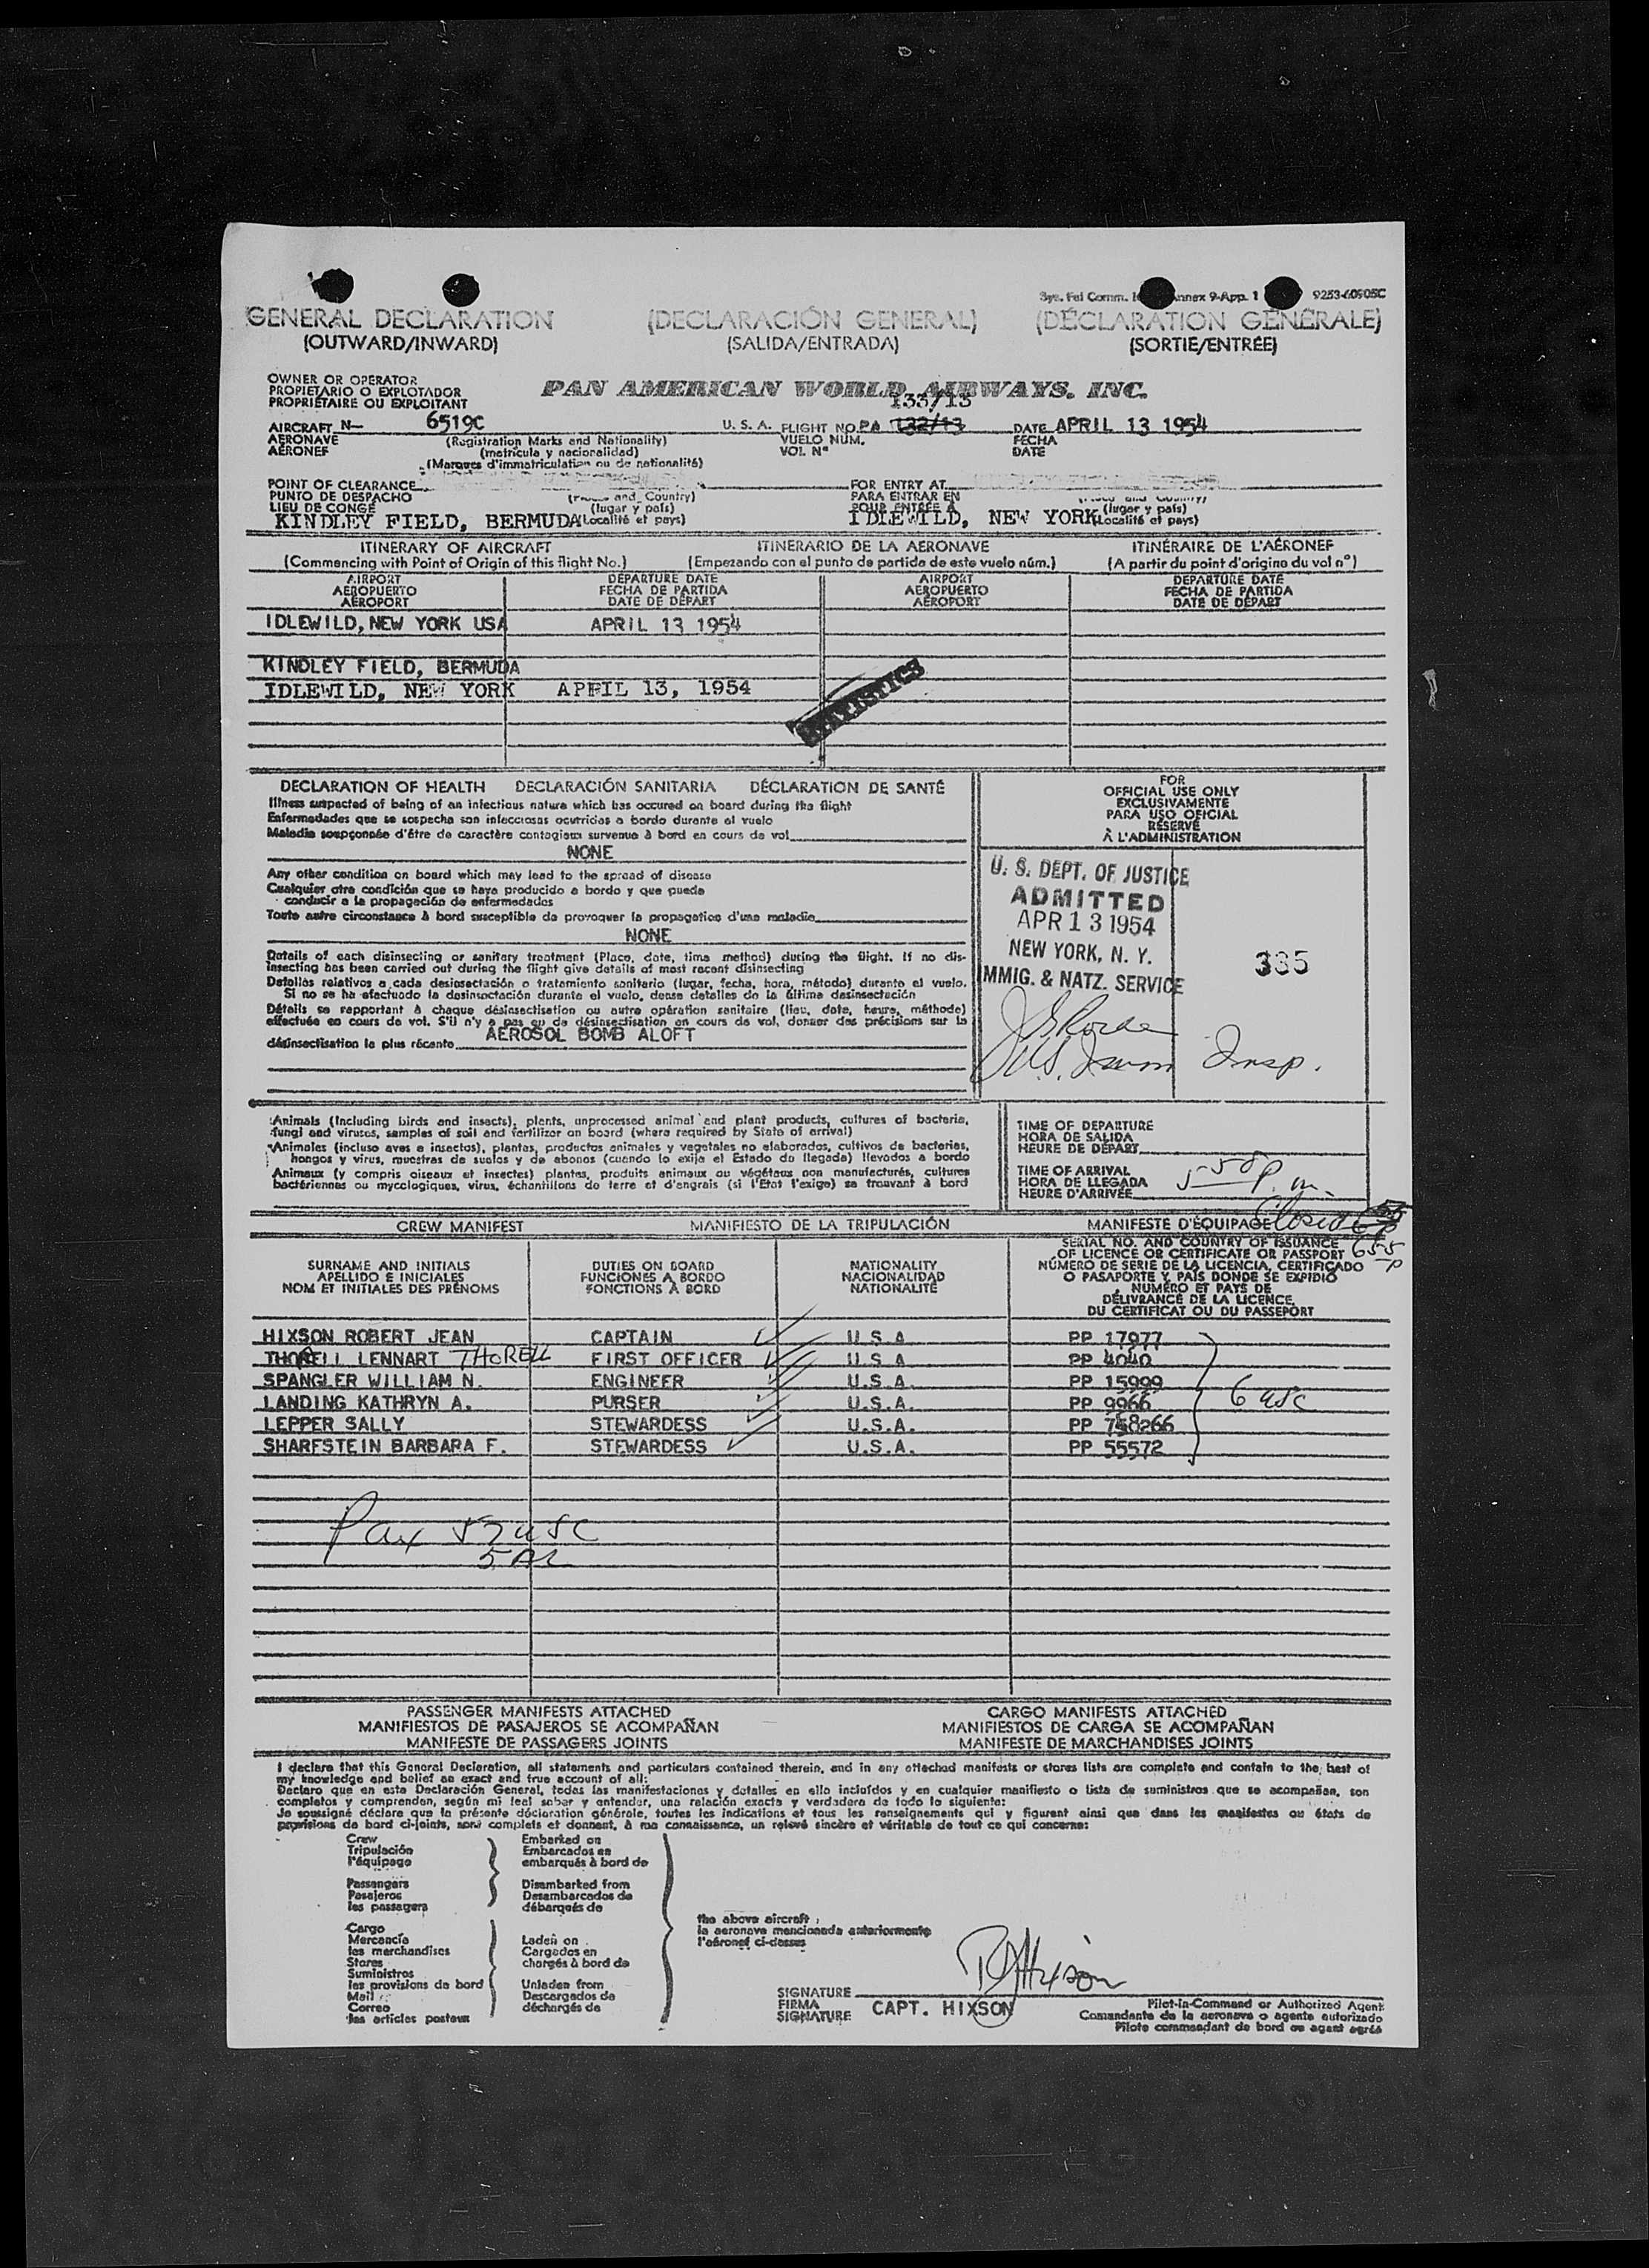 Annex 9-App. 1
9253-60905C
GENERAL DECLARATION (DECLARACIÓN GENERAL) (DÉCLARATION GÉNÉRALE)
(OUTWARD/INWARD) (SALIDA/ENTRADA) (SORTIE/ENTRÉE)
OWNER OR OPERATOR
PROPIETARIO O EXPLOTADOR
PROPRIÉTAIRE OU EXPLOITANT
PAN AMERICAN WORLD AIRWAYS, INC.
133/13
AIRCRAFT N- 6519C U. S. A. FLIGHT NO. PA 132/13 DATE APRIL 13 1954
AERONAVE (Registration Marks and Nationality) VUELO NÚM. FECHA
AÉRONEF (matrícula y nacionalidad) VOL Nº DATE
(Marques d'immatriculation ou de nationalité)
POINT OF CLEARANCE FOR ENTRY AT
PUNTO DE DESPACHO and Country) PARA ENTRAR EN
LIEU DE CONGÉ (lugar y país) POUR ENTRÉE À (lugar y país)
KINDLEY FIELD, BERMUDA (Localité et pays) IDLEWILD, NEW YORK (Localité et pays)
ITINERARY OF AIRCRAFT ITINERARIO DE LA AERONAVE ITINÉRAIRE DE L'AÉRONEF
(Commencing with Point of Origin of this flight No.) (Empezando con el punto de partida de este vuelo núm.) (A partir du point d'origine du vol nº)
AIRPORT DEPARTURE DATE AIRPORT DEPARTURE DATE
AEROPUERTO FECHA DE PARTIDA AEROPUERTO FECHA DE PARTIDA
AÉROPORT DATE DE DÉPART AÉROPORT DATE DE DÉPART
IDLEWILD, NEW YORK USA APRIL 13 1954
KINDLEY FIELD, BERMUDA
IDLEWILD, NEW YORK APRIL 13, 1954
STATISTICS
DECLARATION OF HEALTH DECLARACIÓN SANITARIA DÉCLARATION DE SANTÉ
Illness suspected of being of an infectious nature which has occured on board during the flight
Enfermedades que se sospecha son infecciosas ocurridas a bordo durante el vuelo
Maladie soupçonnée d'être de caractère contagieux survenue à bord en cours de vol
NONE
Any other condition on board which may lead to the spread of disease
Cualquier otra condición que se haya producido a bordo y que pueda
conducir a la propagación de enfermedades
Toute autre circonstance à bord susceptible de provoquer la propagation d'une maladie
NONE
Details of each disinsecting or sanitary treatment (Place, date, time method) during the flight. If no dis-
insecting has been carried out during the flight give details of most recent disinsecting
Detalles relativos a cada desinsectación o tratamiento sanitario (lugar, fecha, hora, método) durante el vuelo.
Si no se ha efectuado la desinsectación durante el vuelo, dense detalles de la última desinsectación
Détails se rapportant à chaque désinsectisation ou autre opération sanitaire (lieu, date, heure, méthode)
effectuée en cours de vol. S'il n'y a pas eu de désinsectisation en cours de vol, donner des précisions sur la
désinsectisation la plus récente AEROSOL BOMB ALOFT
FOR
OFFICIAL USE ONLY
EXCLUSIVAMENTE
PARA USO OFICIAL
RÉSERVÉ
À L'ADMINISTRATION
U. S. DEPT. OF JUSTICE
ADMITTED
APR 13 1954
NEW YORK, N. Y.
IMMIG. & NATZ. SERVICE
335
U.S. Imm Insp.
Animals (Including birds and insects), plants, unprocessed animal and plant products, cultures of bacteria,
fungi and viruses, samples of soil and fertilizer on board (where required by State of arrival)
Animales (incluso aves e insectos), plantas, productos animales y vegetales no elaborados, cultivos de bacterias,
hongos y virus, muestras de suelos y de abonos (cuando lo exija el Estado de llegada) llevados a bordo
Animaux (y compris oiseaux et insectes) plantes, produits animaux ou végétaux non manufacturés, cultures
bactériennes ou mycologiques, virus, échantillons de terre et d'engrais (si l'État l'exige) se trouvant à bord
TIME OF DEPARTURE
HORA DE SALIDA
HEURE DE DÉPART
TIME OF ARRIVAL
HORA DE LLEGADA
HEURE D'ARRIVÉE
p.m.
Closed
655 P
CREW MANIFEST MANIFIESTO DE LA TRIPULACIÓN MANIFESTE D'ÉQUIPAGE
SURNAME AND INITIALS
APELLIDO E INICIALES
NOM ET INITIALES DES PRÉNOMS
DUTIES ON BOARD
FUNCIONES A BORDO
FONCTIONS À BORD
NATIONALITY
NACIONALIDAD
NATIONALITÉ
SERIAL NO. AND COUNTRY OF ISSUANCE
OF LICENCE OR CERTIFICATE OR PASSPORT
NÚMERO DE SERIE DE LA LICENCIA, CERTIFICADO
O PASAPORTE Y PAÍS DONDE SE EXPIDIÓ
NUMÉRO ET PAYS DE
DÉLIVRANCE DE LA LICENCE,
DU CERTIFICAT OU DU PASSEPORT
HIXSON ROBERT JEAN CAPTAIN U.S.A. PP 17977
THORELL LENNART THORELL FIRST OFFICER U.S.A. PP 4040
SPANGLER WILLIAM N. ENGINEER U.S.A. PP 15999
LANDING KATHRYN A. PURSER U.S.A. PP 9966 6 usc
LEPPER SALLY STEWARDESS U.S.A. PP 758266
SHARFSTEIN BARBARA F. STEWARDESS U.S.A. PP 55572
Pax 57 usc
5 AL
PASSENGER MANIFESTS ATTACHED CARGO MANIFESTS ATTACHED
MANIFIESTOS DE PASAJEROS SE ACOMPAÑAN MANIFIESTOS DE CARGA SE ACOMPAÑAN
MANIFESTE DE PASSAGERS JOINTS MANIFESTE DE MARCHANDISES JOINTS
I declare that this General Declaration, all statements and particulars contained therein, and in any attached manifests or stores lists are complete and contain to the best of
my knowledge and belief an exact and true account of all:
Declaro que en esta Declaración General, todas las manifestaciones y detalles en ella incluídos y en cualquier manifiesto o lista de suministros que se acompañan, son
completos y comprenden, según mi leal saber y entender, una relación exacta y verdadera de todo lo siguiente:
Je soussigné déclare que la présente déclaration générale, toutes les indications et tous les renseignements qui y figurent ainsi que dans les manifestes ou états de
provisions de bord ci-joints, sont complets et donnent, à ma connaissance, un relevé sincère et véritable de tout ce qui concerne:
Crew
Tripulación
l'équipage
Passengers
Pasajeros
les passagers
Embarked on
Embarcados en
embarqués à bord de
Disembarked from
Desembarcados de
débarqués de
Cargo
Mercancía
les marchandises
Stores
Suministros
les provisions de bord
Mail
Correo
les articles postaux
Laden on
Cargados en
chargés à bord de
Unladen from
Descargados de
déchargés de
the above aircraft
la aeronave mencionada anteriormente
l'aéronef ci-dessus
R J Hixson
SIGNATURE
FIRMA CAPT. HIXSON
SIGNATURE
Pilot-in-Command or Authorized Agent
Comandante de la aeronave o agente autorizado
Pilote commandant de bord ou agent agréé